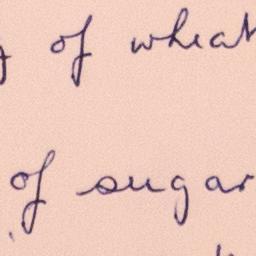 of wheat
of sugar